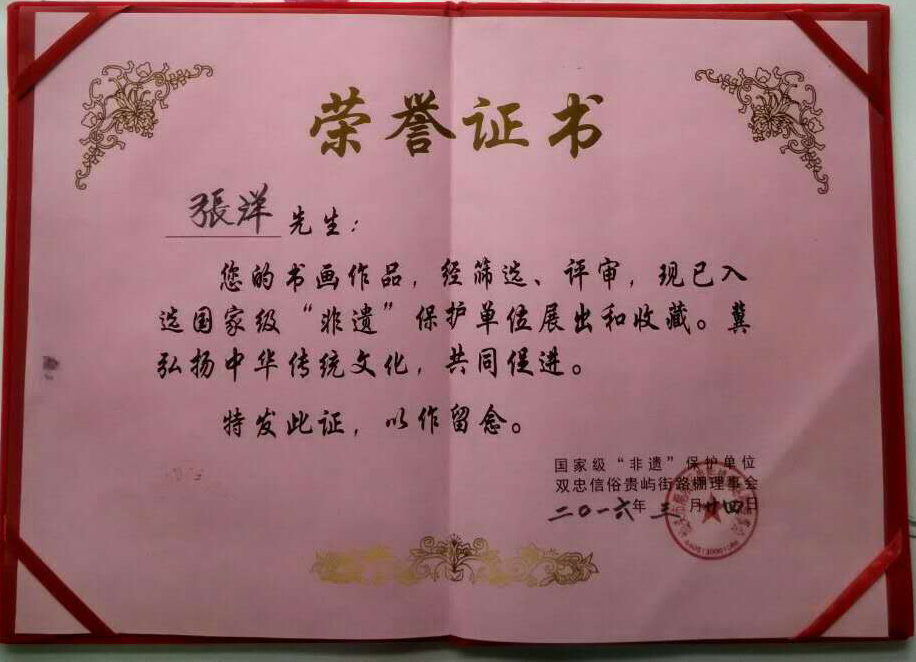 荣誉证书
張洋先生：
您的书画作品，经筛选、评审，现已入
选国家级“非遗”保护单位展出和收藏。冀
弘扬中华传统文化，共同促进。
特发此证，以作留念。
国家级“非遗”保护单位
双忠信俗贵屿街路棚理事会
二〇一六年三月廿四日